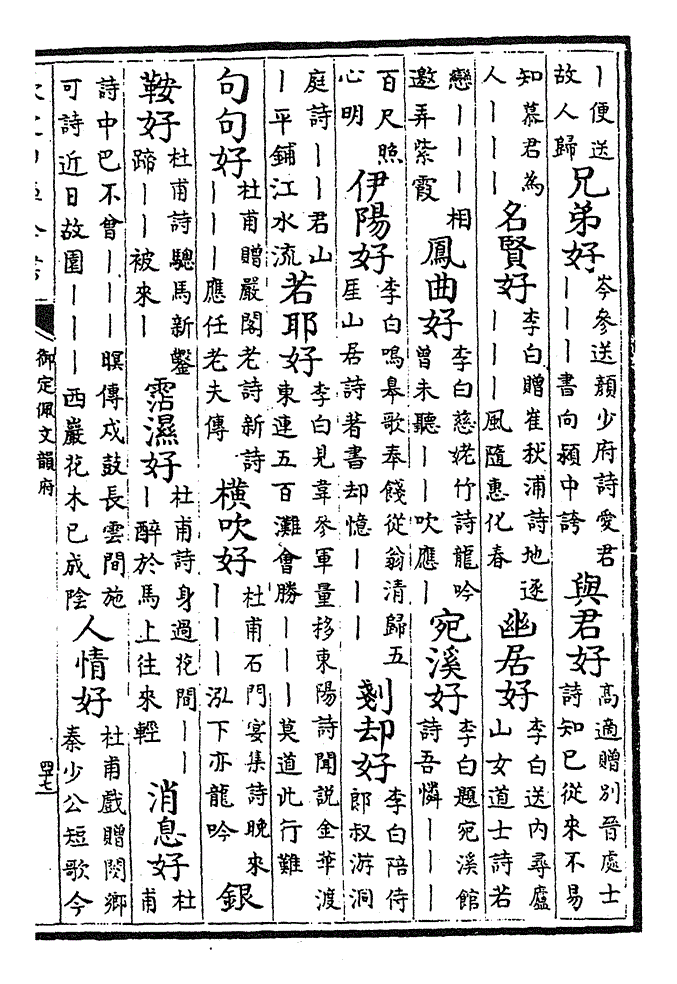 丨便送
故人歸
兄弟好
岑參送顏少府詩愛君
丨丨丨書向潁中誇
與君好
高適贈別晉處士
詩知已從來不易
知慕君為
人丨丨丨
名賢好
李白贈崔秋浦詩地逐
丨丨丨風隨惠化春
幽居好
李白送內尋廬
山女道士詩若
戀丨丨丨相
邀弄紫霞
鳳曲好
李白慈姥竹詩龍吟
曾未聽丨丨吹應丨
宛溪好
李白題宛溪館
詩吾憐丨丨丨
百尺照
心明
伊陽好
李白鳴臯歌奉餞從翁清歸五
厓山居詩著書却憶丨丨丨
剗却好
李白陪侍
郎叔游洞
庭詩丨丨君山
丨平鋪江水流
若耶好
李白見韋參軍量移東陽詩聞說金華渡
東連五百灘會勝丨丨丨莫道此行難
句句好
杜甫贈嚴閣老詩新詩
丨丨丨應任老夫傳
橫吹好
杜甫石門宴集詩晚來
丨丨丨泓下亦龍吟
銀
鞍好
杜甫詩驄馬新鑿
蹄丨丨被來丨
霑濕好
杜甫詩身過花間丨丨
丨醉於馬上往來輕
消息好
杜
甫
詩中巴不曾丨丨丨暝傳戍鼓長雲間施
可詩近日故園丨丨丨西巖花木已成陰
人情好
杜甫戲贈閿鄉
秦少公短歌今
御定佩文韻府
四十七